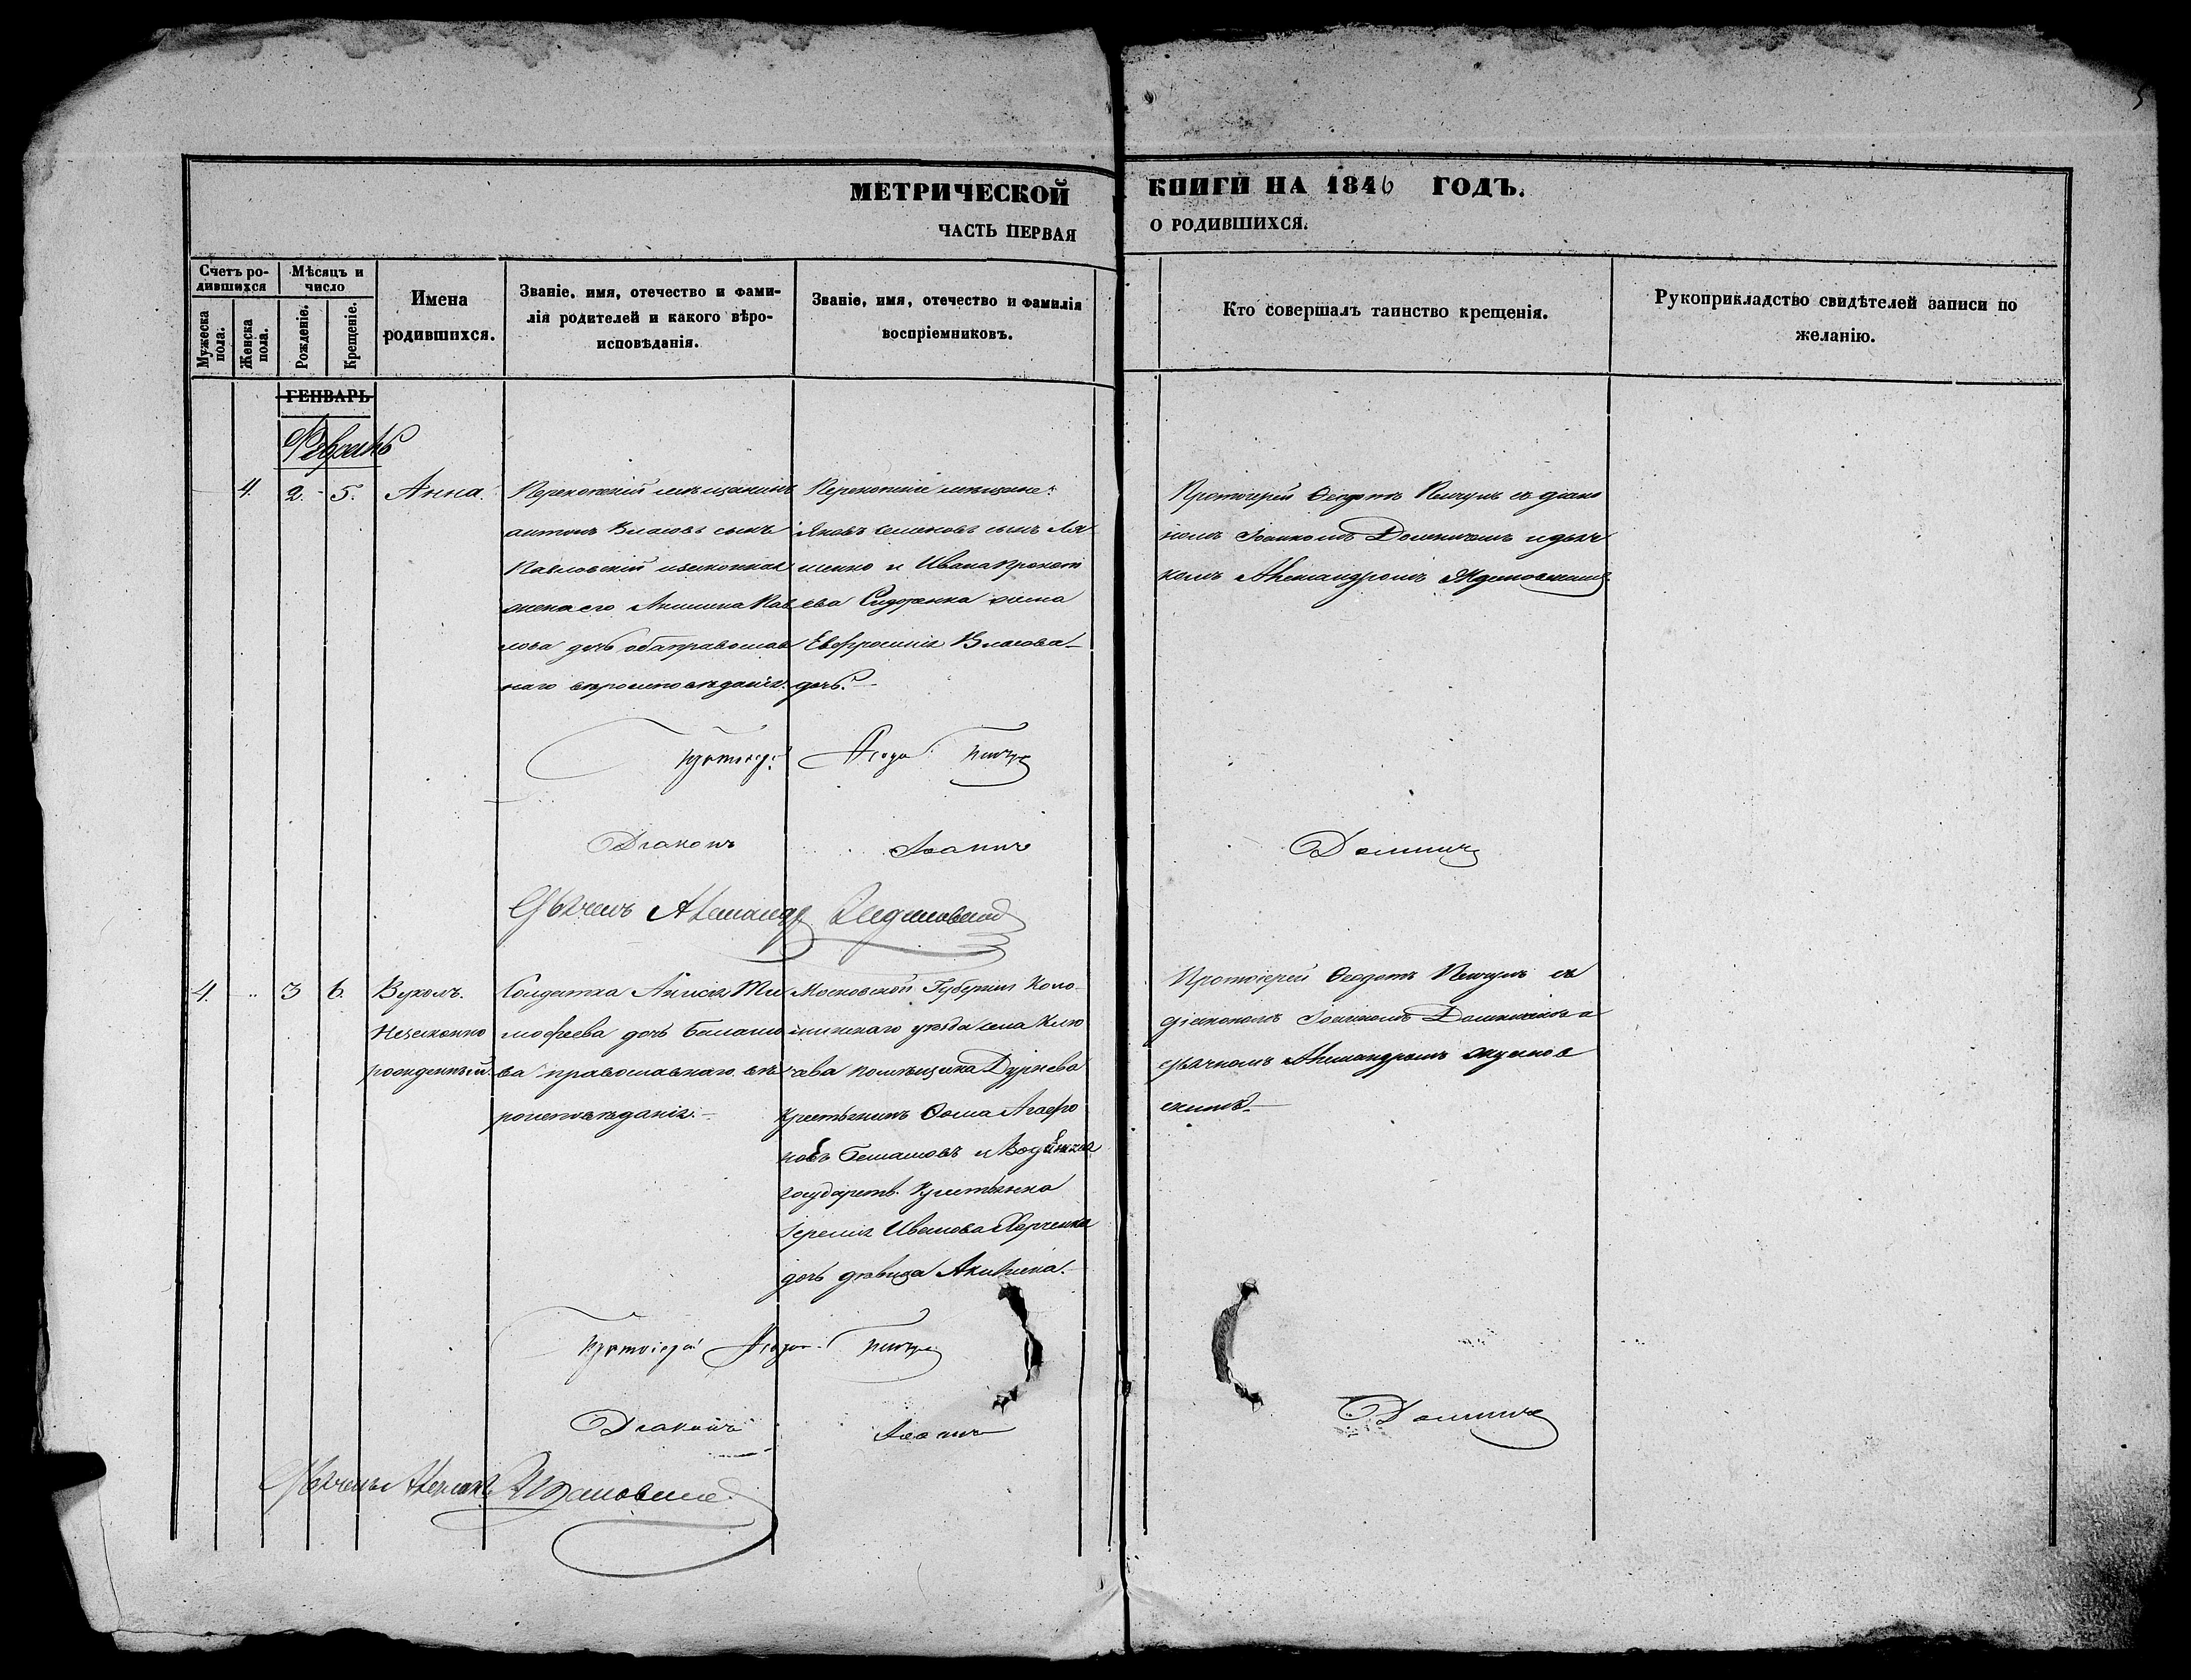 МЕТРИЧЕСКОЙ КНИГИ НА 1846 ГОДЪ.
ЧАСТЬ ПЕРВАЯ О РОДИВШИХСЯ.
Счетъ ро-
дившихся
Мужеска
пола.
Женска
пола.
Мѣсяцъ и
число
Рожденіе.
Крещеніе.
Имена
родившихся.
Званіе, имя, отечество и фами-
лія родителей и какого вѣро-
исповѣданія.
Званіе, имя, отечество и фамилія
воспріемниковъ.
Кто совершалъ таинство крещенія.
Рукоприкладство свидѣтелей записи по
желанію.
ГЕНВАРЬ
Февраль
4. 2. 5. Анна.
Перекопскій мѣщанинъ
антонъ Власовъ сынъ
Павловскій изаконная
жена его Акилина Пав
лова дочь оба православ
наго вѣроисповѣданія.
Перекопскіе мѣщане:
Яковъ Семеновъ сынъ
и Ивана Прокоп
ева Сидоренка жена
Евфросинія Власова
дочь.
Протоіерей Ѳеодотъ съ діако
номъ Іоанномъ и дьяч
комъ Александромъ
Протоіер. Ѳеодо.
Діаконъ Іоаннъ
Дьячекъ Александр
4. 3 6. Вуколъ.
Незаконно
рожденный.
Солдатка Анисія Ти
мофеева дочь
ва православнаго вѣ
роисповѣданія.
Московской Губерніи Коло
менскаго уѣзда села Клю
чева помѣщика Дурнева
Крестьянинъ Ѳома Агафо
новъ и
государств. Крестьянка
Іеремія Иванова Харченка
дочь дѣвица Акилина.
Протоіерей Ѳеодотъ съ
діакономъ Іоанномъ
дьячкомъ Александромъ
скимъ.
Протоіерей Ѳеодо.
Діаконъ Іоаннъ
Дьячекъ Александ